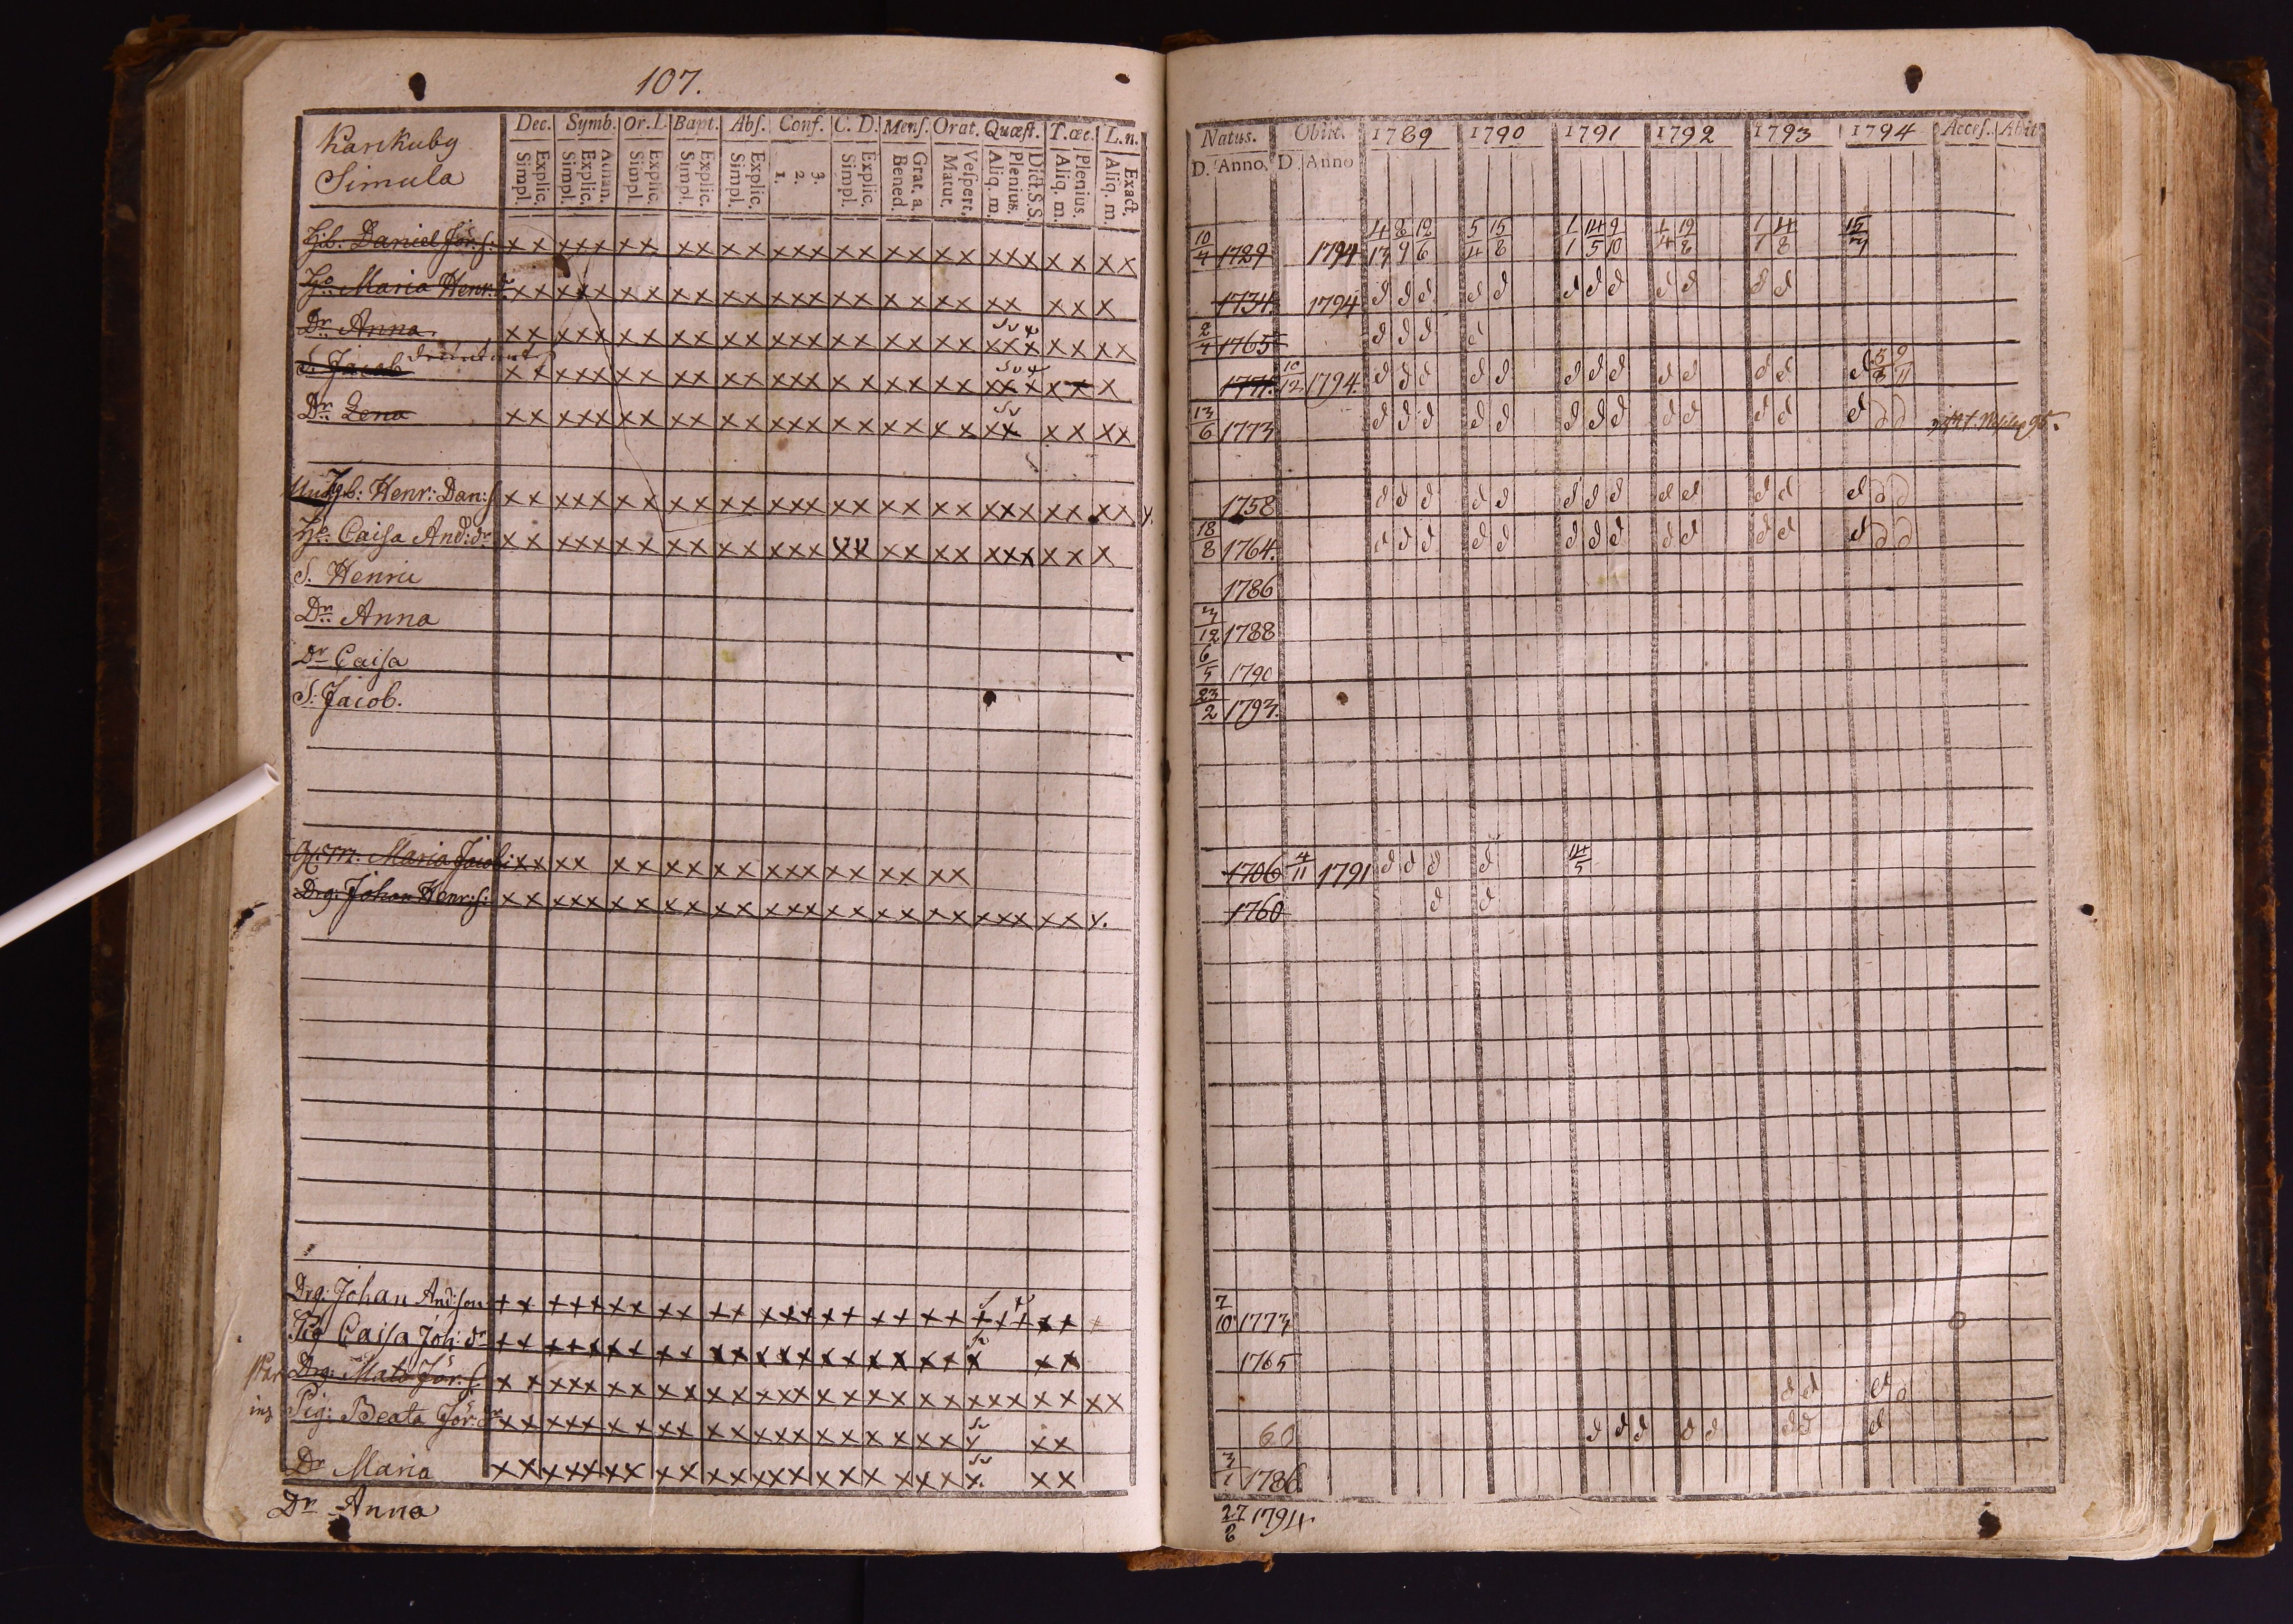 107.
Dec. Symb. Or. L. Bapt. Abs. Conf. C. D. Mens. Orat. Quæst. T. œc. L. n.
Simpl. Explic. Simpl. Explic. Athan. Simpl. Explic. Simpl. Explic. Simpl. Explic. 1. 2. 3. Simpl. Explic. Bened. Grat. a. Matut. Vespert. Aliq. m. Plenius. Dict. S.S. Aliq. m. Plenius. Aliq. m. Exact.
Karkuby
Simula
Hb. Daniel Jör: s:
Ho Maria Henr: dr
Dr. Anna
S. Jacob
Dr. Lena
Hb: Henr: Dan: s
Ho Caisa And: dr
S. Henric
Dr. Anna
Dr Caisa
S. Jacob.
Maria Jacobs
Drg: Johan Henr: s:
Drg: Johan And:son
Pig Caisa Joh: dr
Drg: Mats Jör: s
Pig: Beata Jör: dr
Dr Maria
Dr Anna
Natus. Obiit. 1789 1790 1791 1792 1793 1794 Acces. Abiit
D. Anno. D. Anno
10/4 1729 1794 4/13 8/9 12/6 5/4 15/8 1/1 14/5 9/10 1/4 19/8 1/1 4/8 15/4
1734 1794 d d d d d d d d d d d d
2/4 1765 d d d d
1771. 10/12 1794 d d d d d d d d d d d d d 5/8 9/11
13/6 1773 d d d d d d d d d d d d d d d
1758 d d d d d d d d d d d d d d d
18/8 1764. d d d d d d d d d d d d d d d
1786
3/12 1788
6/5 1790
23/2 1793.
1706 4/11 1791 d d d d 14/5
1760 d d
7/10 1773
1765
d d d d
60 d d d d d d d d
3/1 1786
27/8 1794